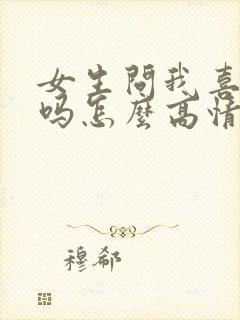 女生問我喜
吗怎麼高情
穆郗